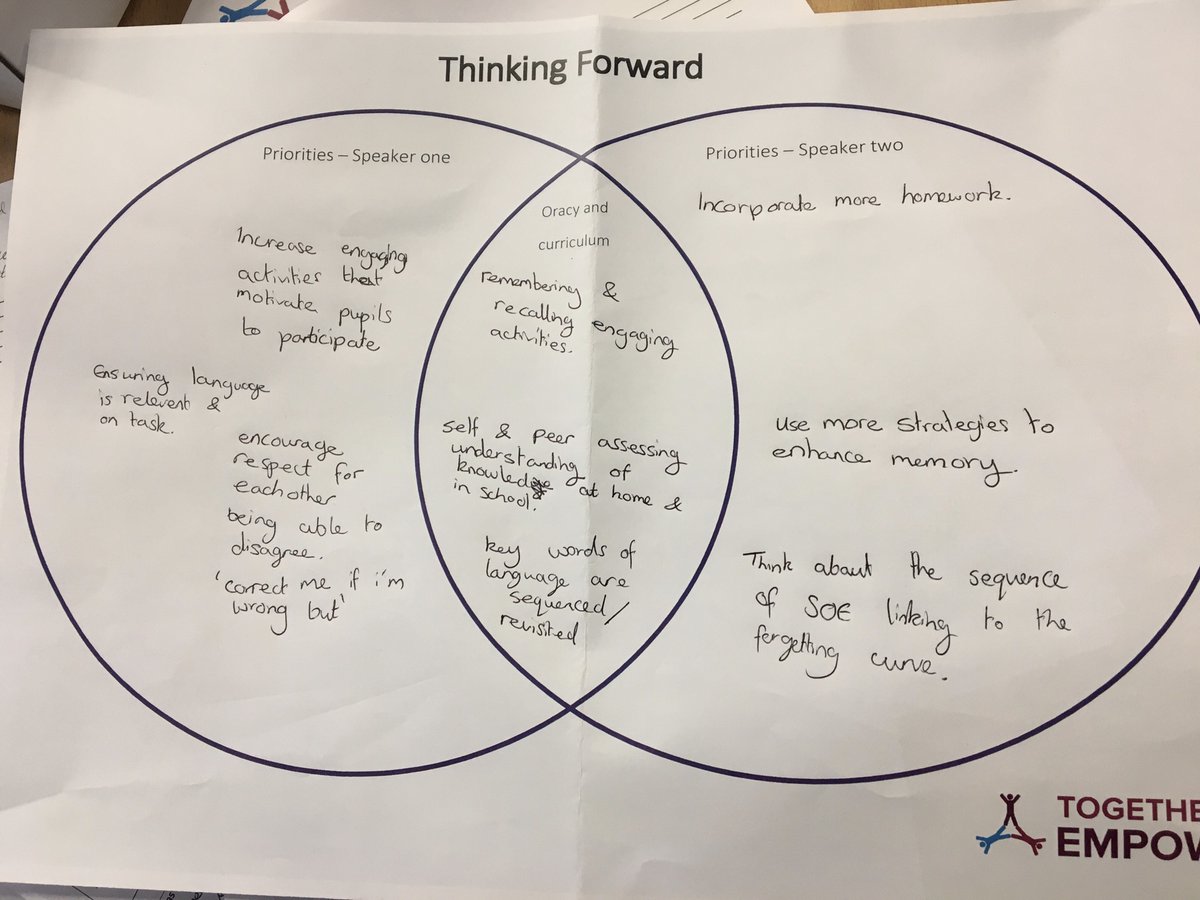 Thinking Forward
Priorities – Speaker one
Increase engaging
activities that
motivate pupils
to participate
Ensuring language
is relevent &
on task.
encourage
respect for
eachother
being able to
disagree.
'correct me if i'm
wrong but'
Oracy and
curriculum
remembering &
recalling engaging
activities.
self & peer assessing
understanding of
knowledge at home &
in school.
key words of
language are
sequenced/
revisited
Priorities – Speaker two
Incorporate more homework.
use more strategies to
enhance memory.
Think about the sequence
of SOE linking to the
forgetting curve.
TOGETHE
EMPOW